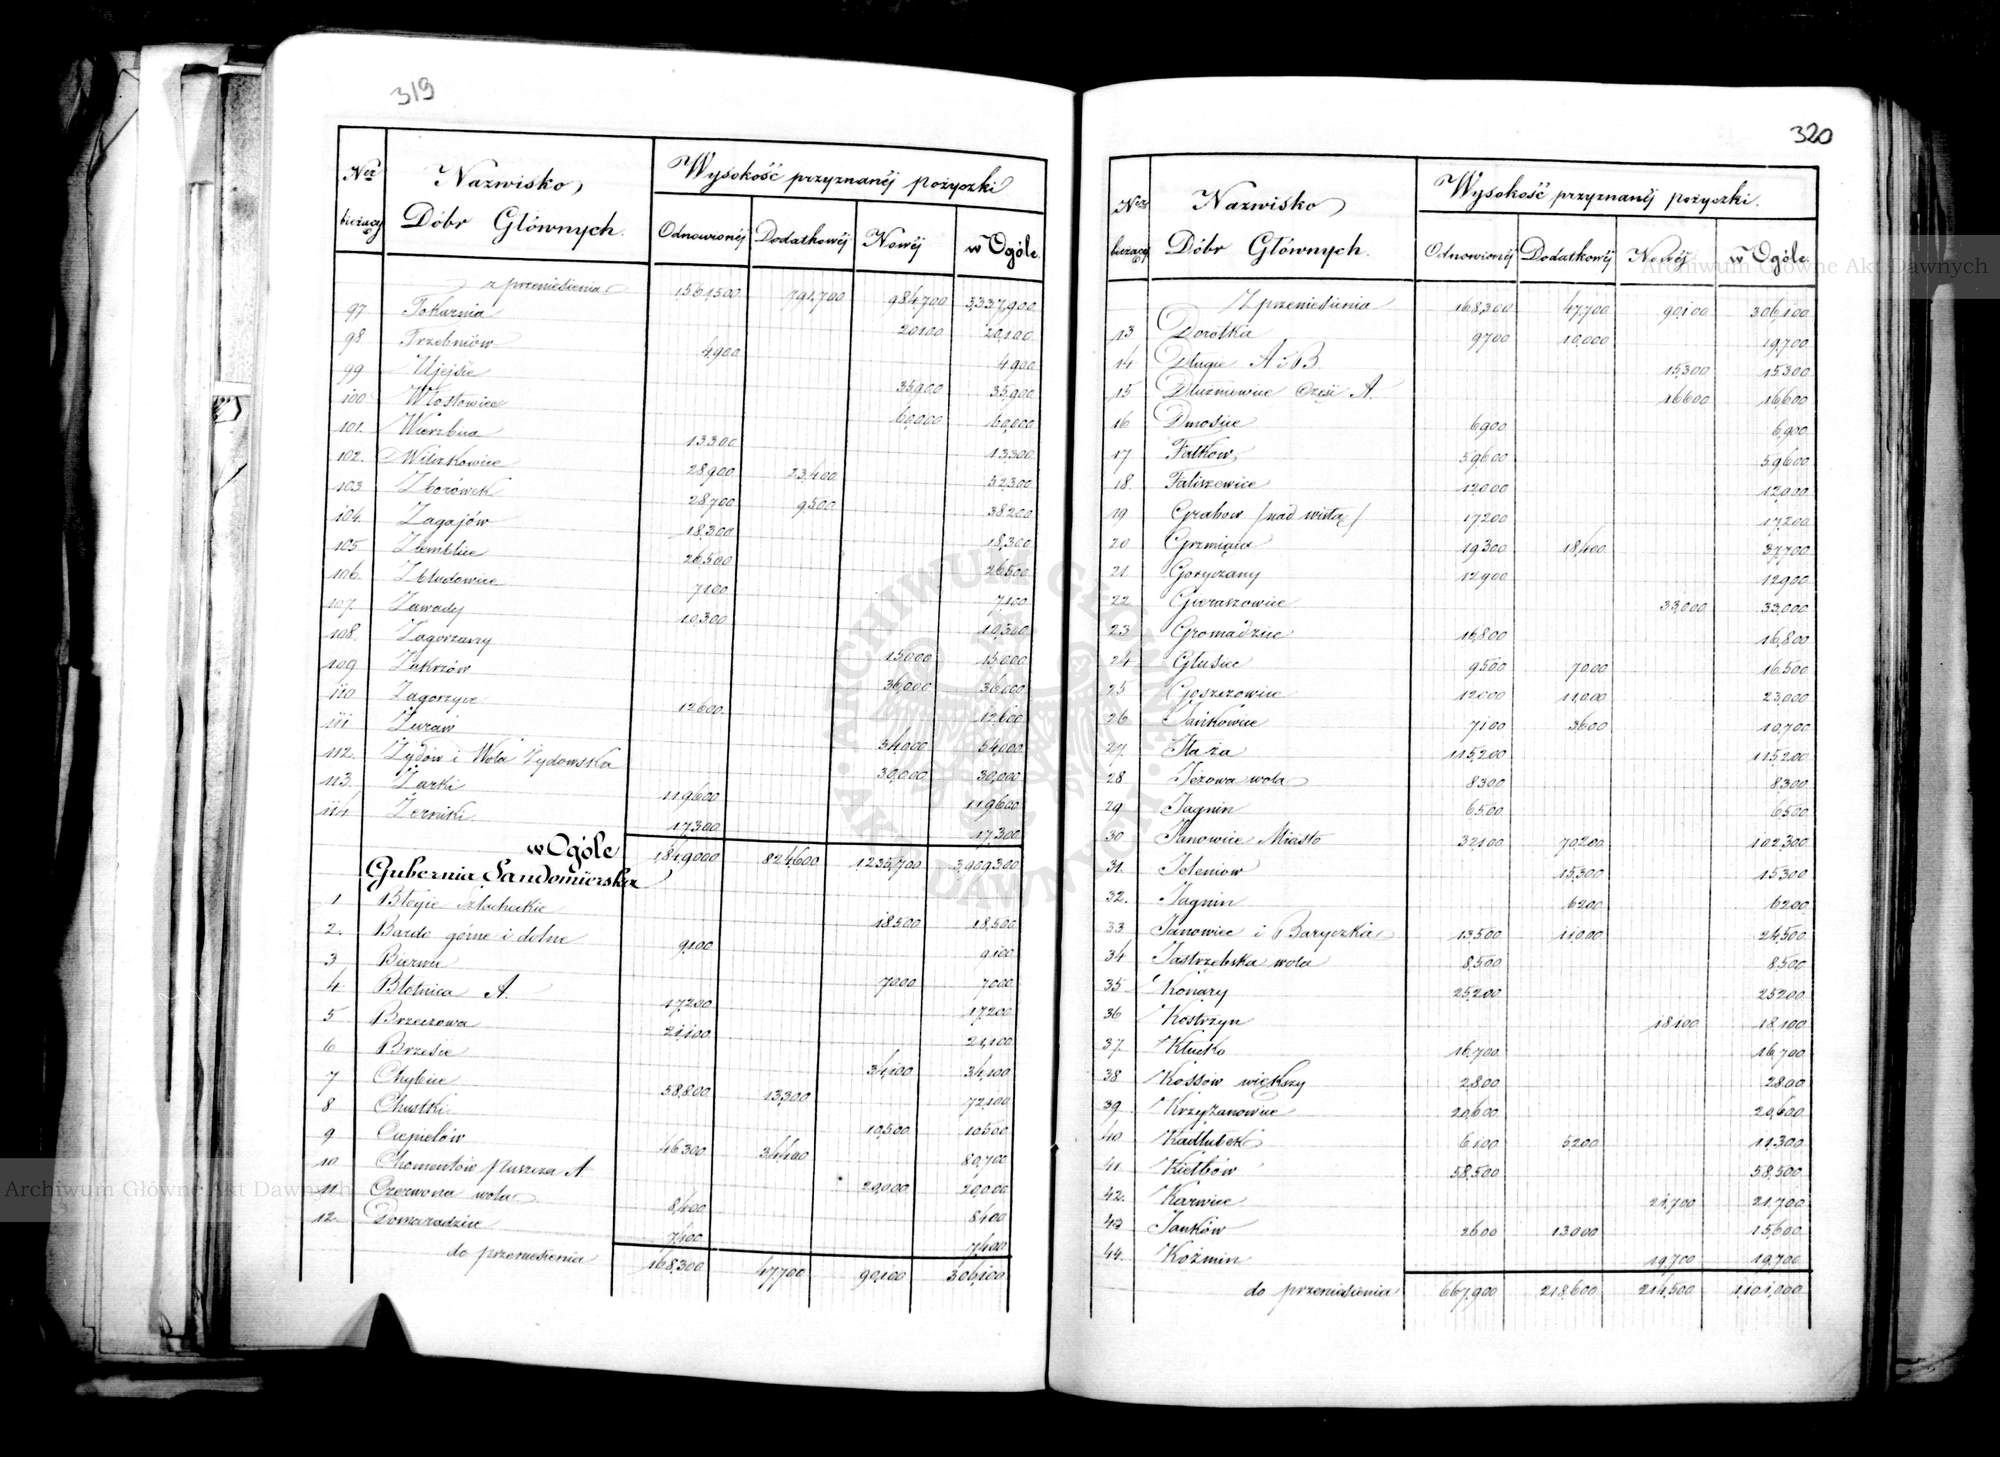 319
Nr bieżący | Nazwisko Dóbr Głównych. | Wysokość przyznanéj pożyczki
Odnowionéj | Dodatkowéj | Nowéj | w Ogóle.
z przeniesienia 1561,500 791,700 984,700 3,337,900
97 Tokarnia 20100 20,100
98. Trzebniów 4900 4900
99 Ujejsce 35,900 35,900
100 Włostowice 60,000 60,000
101. Wierzbica 13300 13,300
102. Wilczkowice 28,900 23,400 52,300
103 Zborówek 28,700 9500 38200
104. Zagajów 18,300 18,300
105 Zemblice 26500 26500
106. Zbludowice 7100 7,100
107. Zawady 10,300 10,300
108. Zagorzany 15000 15,000
109 Zakrzów 36,000 36000
110 Zagorzyce 12600 12600
111 Żuraw 54000 54,000
112. Żydów i Wola Żydowska 30,000 30,000
113. Żarki 119600 119600
114. Żerniki 17300 17,300
w Ogóle 1849000 824600 1,235,700 3,909,300
Gubernia Sandomierska
1 Błogie Szlacheckie 18500 18,500
2. Bardo górne i dolne 9,100 9,100
3 Bierwce 7000 7000
4 Błotnica A. 17,200 17,200
5 Brzezowa 21,100 21,100
6 Brzeście 34,100 34,100
7 Chybice 58,800 13300 72,100
8 Chustki 10,500 10500
9 Ciepielów 46300 34400 80,700
10. Chomentów Puszcza A 20,000 20,000
11 Czerwona wola 8,400 8400
12. Domaradzice 7,400 7,400
do przeniesienia 168,300 47,700 90,100 306,100
320
Nr bieżący | Nazwisko Dóbr Głównych. | Wysokość przyznanéj pożyczki.
Odnowionéj | Dodatkowéj | Nowéj | w Ogóle.
Z przeniesienia 168,300 47,700 90,100 306,100
13 Dorotka 9700 10,000 19,700
14 Długie A i B 15,300 15300
15 Dłużniewice Część A. 16600 16,600
16 Dmosice 6900 6,900
17 Fałków 59600 59600
18. Faliszewice 12000 12,000
19 Grabow /nad wisłą/ 17200 17,200
20 Grzmiąca 19300 18,400 37,700
21 Goryczany 12900 12900
22 Gieraszowice 33,000 33,000
23 Gromadzice 16,800 16,800
24 Głusiec 9500 7000 16,500
25 Goszczowice 12000 11,000 23,000
26 Jańkowice 7100 3600 10,700
27. Iłaża 115,200 115,200
28 Jeżowa wola 8300 8,300
29 Jagnin 6500 6500
30 Janowice Miasto 32100 70200 102,300
31. Jeleniow 15,300 15300
32. Jagnin 6200 6200
33 Janowiec i Baryczka 13,500 11,000 24,500
34 Jastrzębska wola 8,500 8,500
35 Konary 25,200 25200
36 Kostrzyn 18100 18,100
37. Kłucko 16,700 16,700
38 Kossów większy 2800 2800
39. Krzyżanowice 20,600 20,600
40. Kadłubek 6100 5200 11,300
41. Kiełbów 58,500 58,500
42. Karwice 21,700 21,700
43 Janków 2600 13000 15,600
44. Koźmin 19,700 19,700
do przeniesienia 667,900 218,600 214,500 1,101,000
Archiwum Główne Akt Dawnych
Archiwum Główne Akt Dawnych
ARCHIWUM GŁÓWNE AKT DAWNYCH